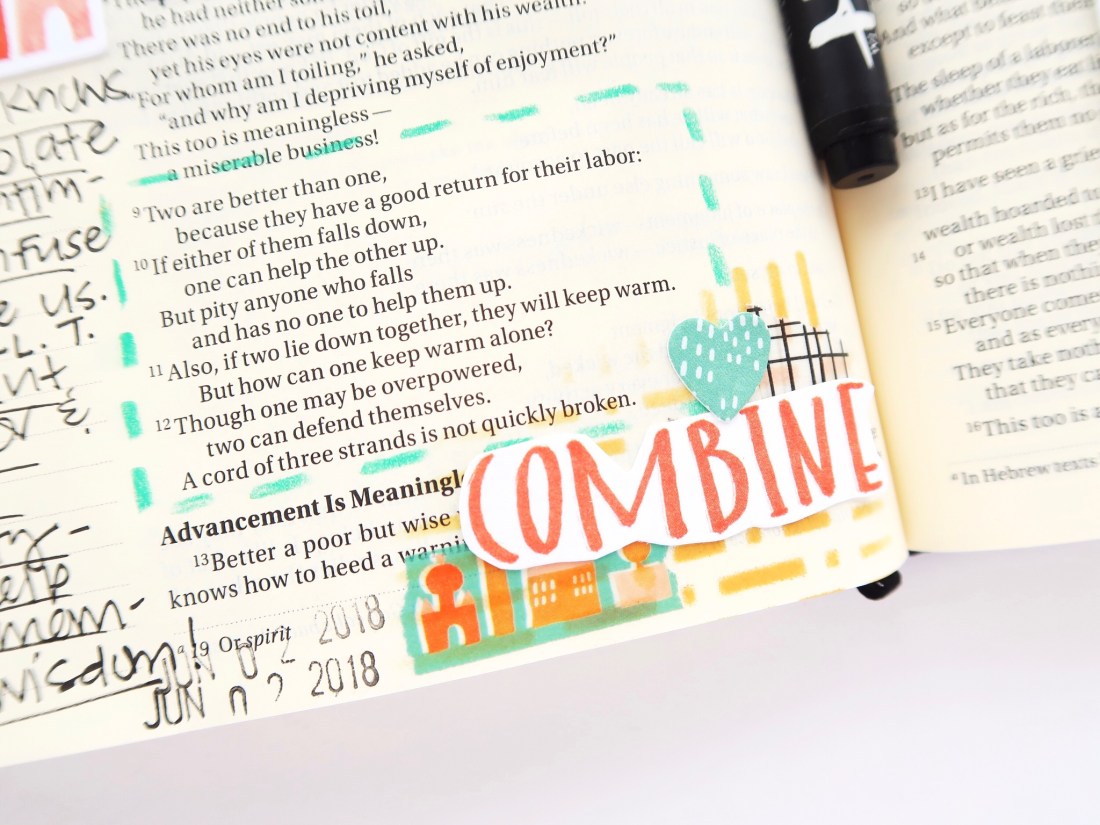 he had neither
There was no end to his toil,
yet his eyes were not content with his wealth.
"For whom am I toiling," he asked,
"and why am I depriving myself of enjoyment?"
This too is meaningless—
a miserable business!
9 Two are better than one,
because they have a good return for their labor:
10 If either of them falls down,
one can help the other up.
But pity anyone who falls
and has no one to help them up.
11 Also, if two lie down together, they will keep warm.
But how can one keep warm alone?
12 Though one may be overpowered,
two can defend themselves.
A cord of three strands is not quickly broken.
Advancement Is
13 Better a poor but wise
knows how to heed a
a 19 Or spirit
COMBINE
knows
us.
L. T.
wisdom!
JUN 0 2 2018
JUN 0 2 2018
except to feast them
The sleep of a laborer
whether they eat
but as for the rich,
permits them no
13 I have seen a
wealth hoarded
or wealth lost
14
so that when
there is
15 Everyone
and as
They take
that they
16 This too is a
a In Hebrew texts